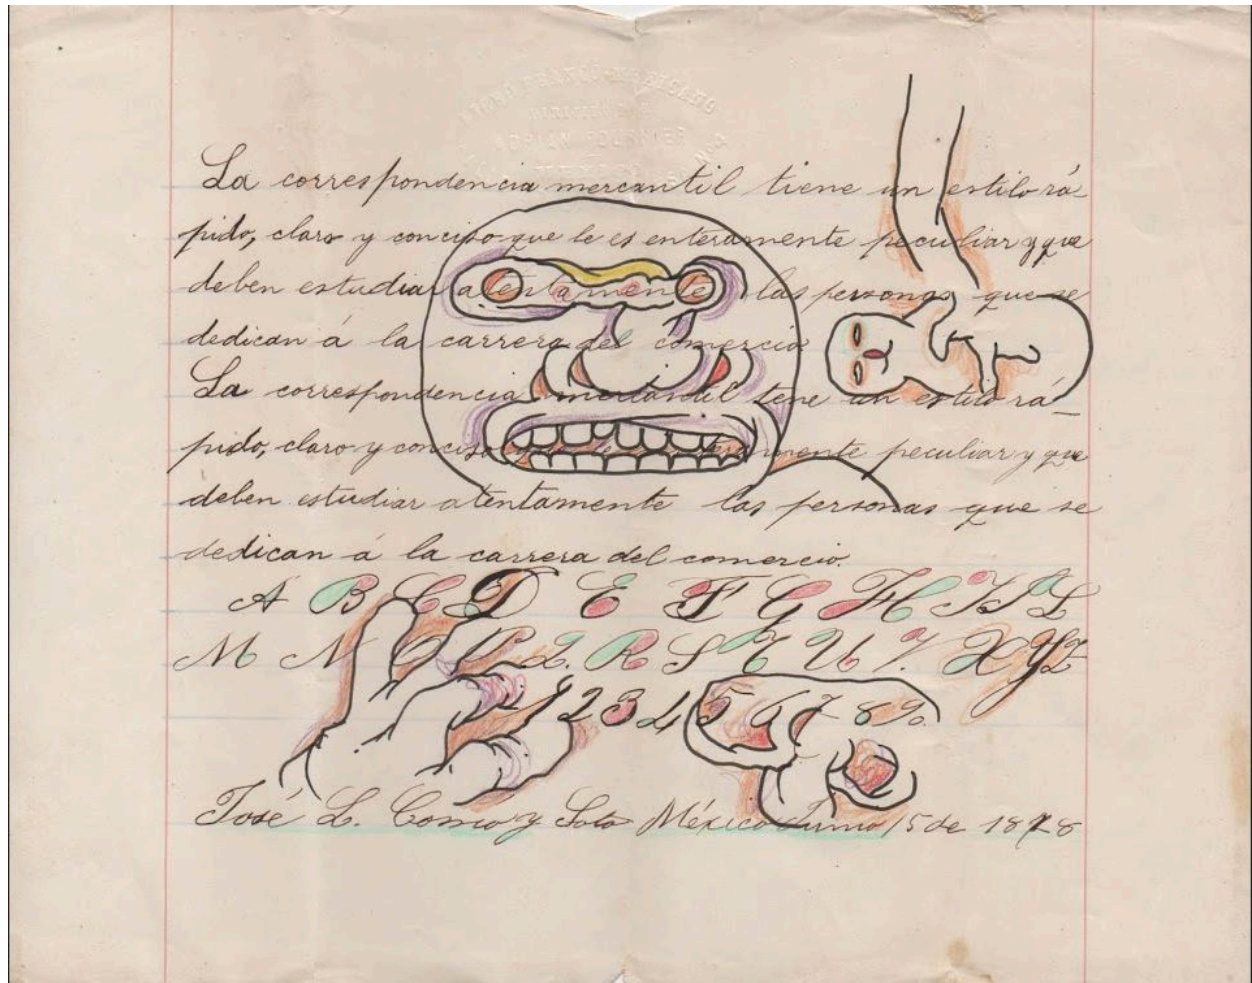 FRANCO-MEXICANO
ADRIAN FOURNIER
La correspondencia mercantil tiene un estilo rá-
pido, claro y conciso que le es enteramente peculiar y que
deben estudiar atentamente las personas que se
dedican á la carrera del comercio.
La correspondencia mercantil tene un estilo rá-
pido, claro y conciso que le es enteramente peculiar y que
deben estudiar atentamente las personas que se
dedican á la carrera del comercio.
A B C D E F G H I J L
M N O P Q. R S T U V. X Y Z
1 2 3 4 5 6 7 8 9 0.
José L. Cossio y Soto México Junio 15 de